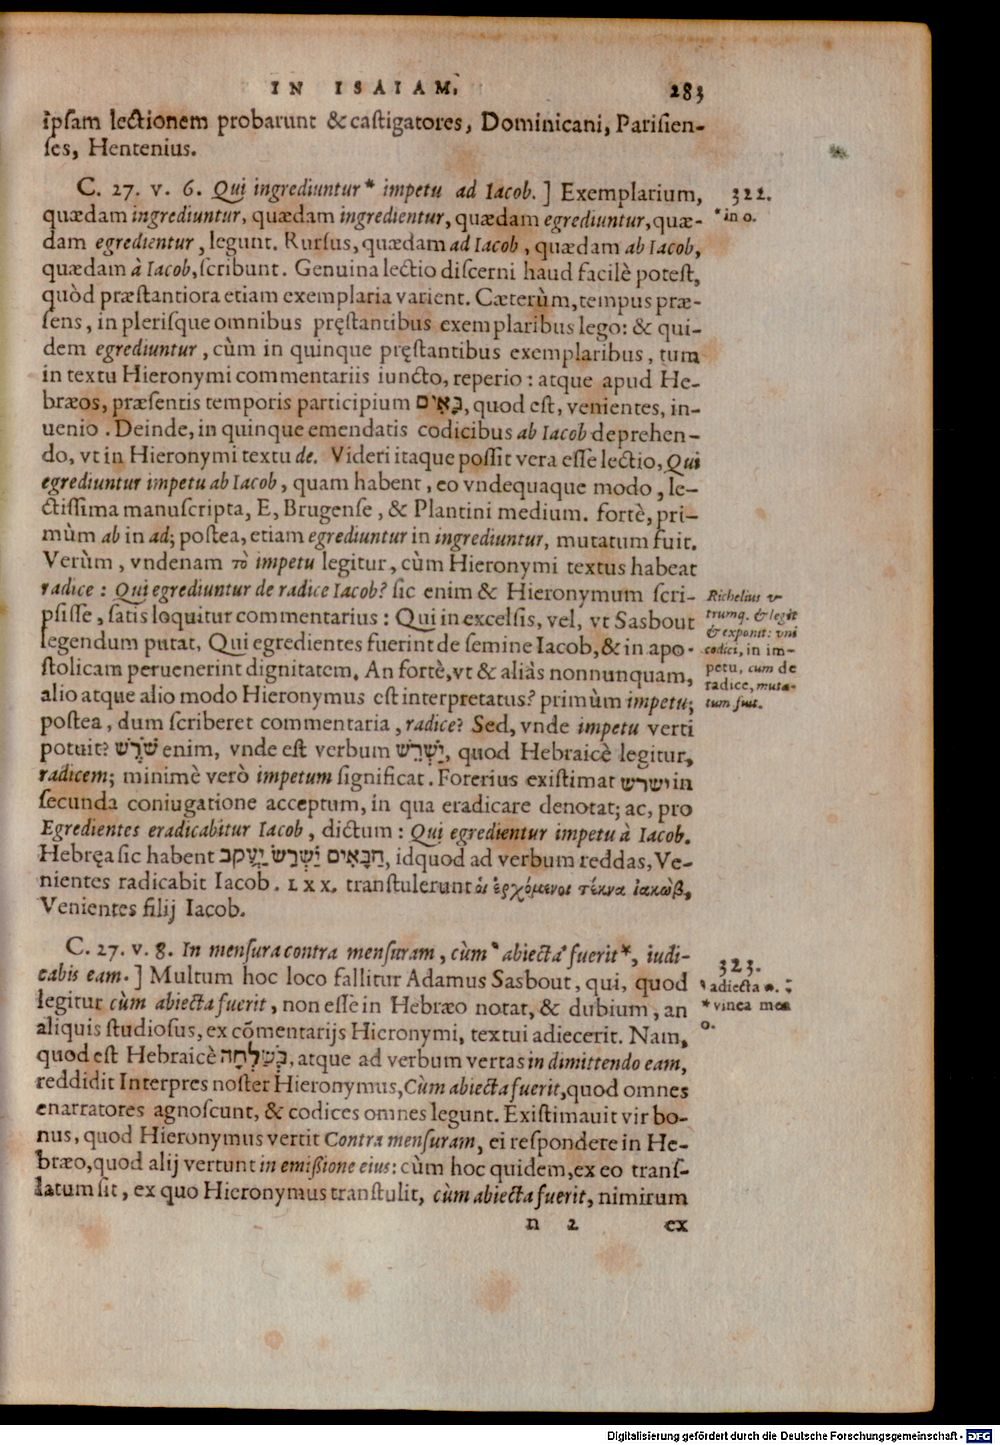 IN ISAIAM. 283
ipſam lectionem probarunt & caſtigatores, Dominicani, Pariſien-
ſes, Hentenius.
C. 27. v. 6. Qui ingrediuntur* impetu ad Iacob. ] Exemplarium,
quædam ingrediuntur, quædam ingredientur, quædam egrediuntur, quæ-
dam egredientur, legunt. Rurſus, quædam ad Iacob, quædam ab Iacob,
quædam à Iacob, ſcribunt. Genuina lectio diſcerni haud facilè poteſt,
quòd præſtantiora etiam exemplaria varient. Cæterùm, tempus præ-
ſens, in pleriſque omnibus pręſtantibus exemplaribus lego: & qui-
dem egrediuntur, cùm in quinque pręſtantibus exemplaribus, tum
in textu Hieronymi commentariis iuncto, reperio: atque apud He-
bræos, præſentis temporis participium בָּאִים, quod eſt, venientes, in-
uenio. Deinde, in quinque emendatis codicibus ab Iacob deprehen-
do, vt in Hieronymi textu de. Videri itaque poſſit vera eſſe lectio, Qui
egrediuntur impetu ab Iacob, quam habent, eo vndequaque modo, le-
ctiſſima manuſcripta, E, Brugenſe, & Plantini medium. fortè, pri-
mùm ab in ad; poſtea, etiam egrediuntur in ingrediuntur, mutatum fuit.
Verùm, vndenam τὸ impetu legitur, cùm Hieronymi textus habeat
radice: Qui egrediuntur de radice Iacob? ſic enim & Hieronymum ſcri-
pſiſſe, ſatis loquitur commentarius: Qui in excelſis, vel, vt Sasbout
legendum putat, Qui egredientes fuerint de ſemine Iacob, & in apo-
ſtolicam peruenerint dignitatem. An fortè, vt & aliàs nonnunquam,
alio atque alio modo Hieronymus eſt interpretatus? primùm impetu;
poſtea, dum ſcriberet commentaria, radice? Sed, vnde impetu verti
potuit? שֹׁרֶשׁ enim, vnde eſt verbum יַשְׁרֵשׁ, quod Hebraicè legitur,
radicem; minimè verò impetum ſignificat. Forerius exiſtimat ישרש in
ſecunda coniugatione acceptum, in qua eradicare denotat; ac, pro
Egredientes eradicabitur Iacob, dictum: Qui egredientur impetu à Iacob.
Hebręa ſic habent הַבָּאִים יַשְׁרֵשׁ יַעֲקֹב, idquod ad verbum reddas, Ve-
nientes radicabit Iacob. LXX. tranſtulerunt οἱ ἐρχόμενοι τέκνα ἰακὼβ,
Venientes filij Iacob.
C. 27. v. 8. In menſura contra menſuram, cùm ‵ abiecta′ fuerit*, iudi-
cabis eam. ] Multum hoc loco fallitur Adamus Sasbout, qui, quod
legitur cùm abiecta fuerit, non eſſe in Hebræo notat, & dubium, an
aliquis ſtudioſus, ex cõmentarijs Hieronymi, textui adiecerit. Nam,
quod eſt Hebraicè בְּשַׁלְחָהּ, atque ad verbum vertas in dimittendo eam,
reddidit Interpres noſter Hieronymus, Cùm abiecta fuerit, quod omnes
enarratores agnoſcunt, & codices omnes legunt. Exiſtimauit vir bo-
nus, quod Hieronymus vertit Contra menſuram, ei reſpondere in He-
bræo, quod alij vertunt in emißione eius: cùm hoc quidem, ex eo tranſ-
latum ſit, ex quo Hieronymus tranſtulit, cùm abiecta fuerit, nimirum
n 2 ex
322.
*in o.
Richelius v-
trumq. & legit
& exponit: vni
codici, in im-
petu, cum de
radice, muta-
tum fuit.
323.
‵adiecta
* vinea mea
o.
Digitalisierung gefördert durch die Deutsche Forschungsgemeinschaft - DFG